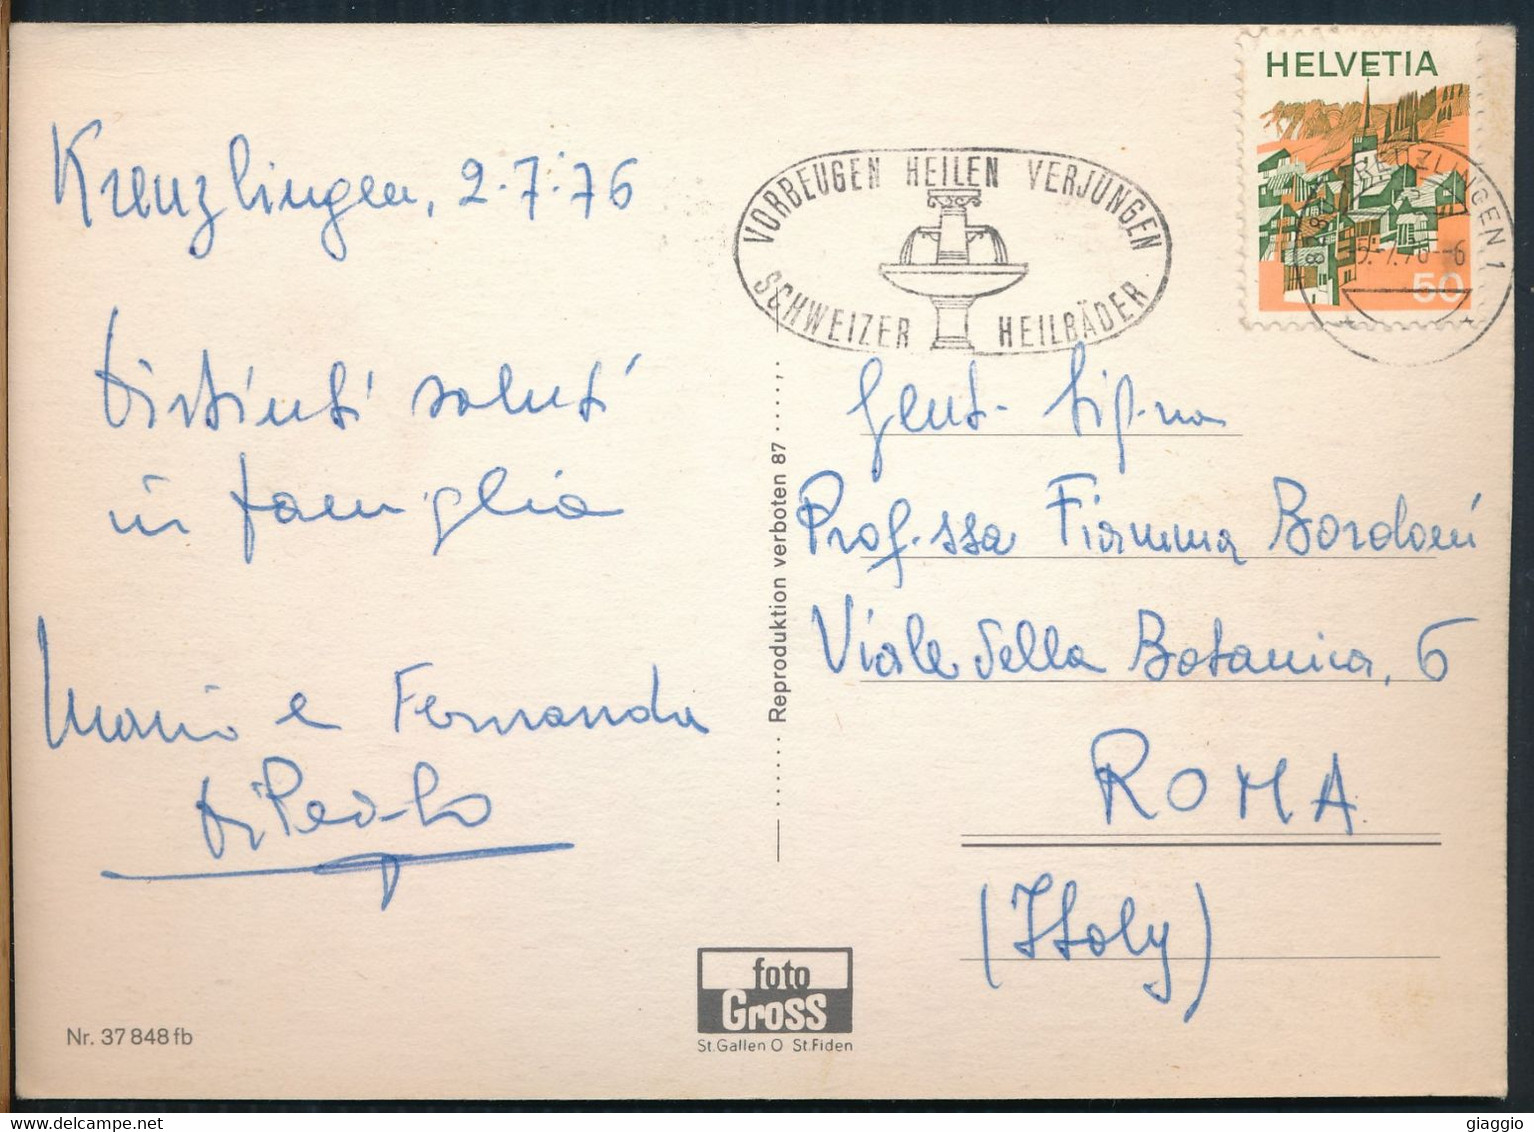 Kreuzlingen, 2.7.76
Distinti saluti
in famiglia
Mario e Fernanda
Nr. 37 848 fb
Reproduktion verboten 87
foto
Gross
St.Gallen O St.Fiden
VORBEUGEN HEILEN VERJÜNGEN
SCHWEIZER HEILBÄDER
HELVETIA
50
8280 KREUZLINGEN 1
5.-7.76--6
Gent. Sig.na
Prof.ssa Fiamma Bordoni
Viale della Botanica, 6
ROMA
(Italy)